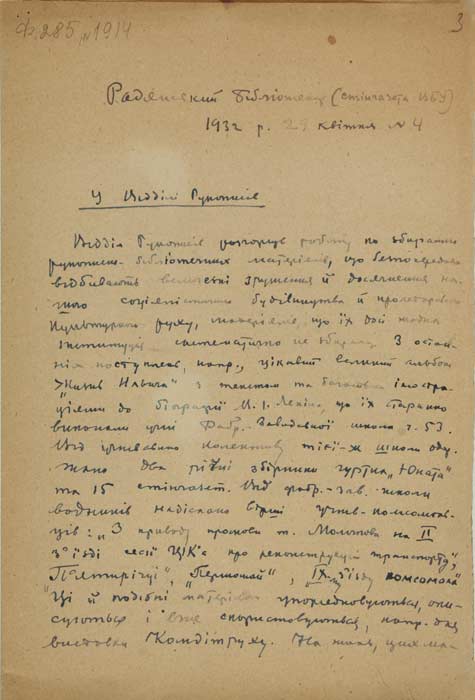 Ф. 285, № 1914
3
Радянський бібліотекар (стінгазета ВБУ)
1932 р. 29 квітня № 4
У Відділі Рукописів
Відділ Рукописів розгорнув роботу по збиранню
рукописно-бібліотечних матеріялів, що безпосередньо
відбивають велетенські зрушення й досягнення на-
шого соціялістичного будівництва й пролетарського
культурного руху, матеріялів, що їх досі жодна
інституція систематично не збирала. З остан-
ніх поступлень, напр., цікавий великий альбом
"Жизнь Ильича" з текстом та багатьма ілюстра-
ціями до біографії В. І. Леніна, що їх старанно
виконали учні Фабр. Заводської школи ч. 53.
Від учнівського колективу тієї-ж школи оде-
жано два рівні збірники гуртка "Юнага"
та 15 стінгазет. Від фабр.-зав. школи
водників надіслано вірші учнів-комсомоль-
ців: "З приводу промови т. Молотова на II
з'їзді сесії ЦІК'а про реконструкцію транспорту",
"П'ятирічці", "Першотравень", "IX-му з'їзду комсомола"
Ці й подібні матеріяли упорядковуються, опи-
суються і вже використовуються, напр. для
виставки Комдітруху. На жаль, цих ма-